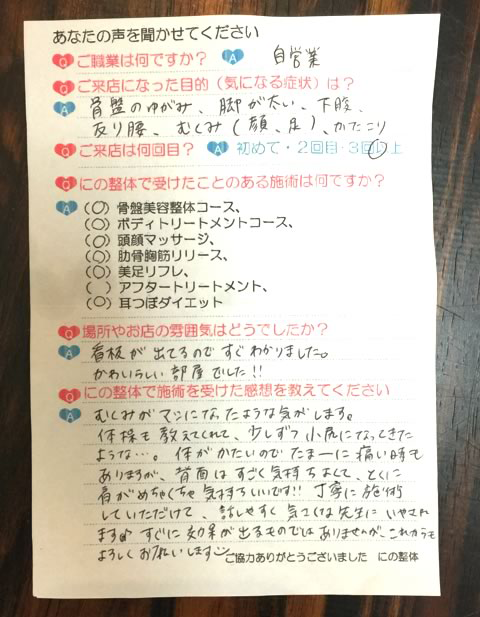 あなたの声を聞かせてください
Q ご職業は何ですか? A 自営業
Q ご来店になった目的(気になる症状)は?
A 骨盤のゆがみ、脚が太い、下腹、
反り腰、むくみ(顔、足)、かたこり
Q ご来店は何回目? A 初めて・2回目・3回以上
Q にの整体で受けたことのある施術は何ですか?
A (○) 骨盤美容整体コース、
(○) ボディトリートメントコース、
(○) 頭顔マッサージ、
(○) 肋骨胸筋リリース、
(○) 美足リフレ、
( ) アフタートリートメント、
(○) 耳つぼダイエット
Q 場所やお店の雰囲気はどうでしたか?
A 看板が出てるのですぐわかりました。
かわいらしい部屋でした!!
Q にの整体で施術を受けた感想を教えてください
A むくみがマシになったような気がします。
体操も教えてくれて、少しずつ小尻になってきた
ような…。体がかたいのでたまーに痛い時も
ありますが、背面はすごく気持ちよくて、とくに
肩がめちゃくちゃ気持ちいいです!!丁寧に施術
していただけて、話しやすく気さくな先生にいやされ
ます♪すぐに効果が出るものではありませんが、これからも
よろしくお願いします
ご協力ありがとうございました にの整体